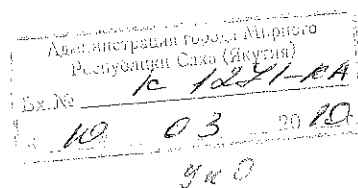 Администрация города Мирного
Республики Саха (Якутия)
Вх.№ к 1271-КА
« 10 03 20 10